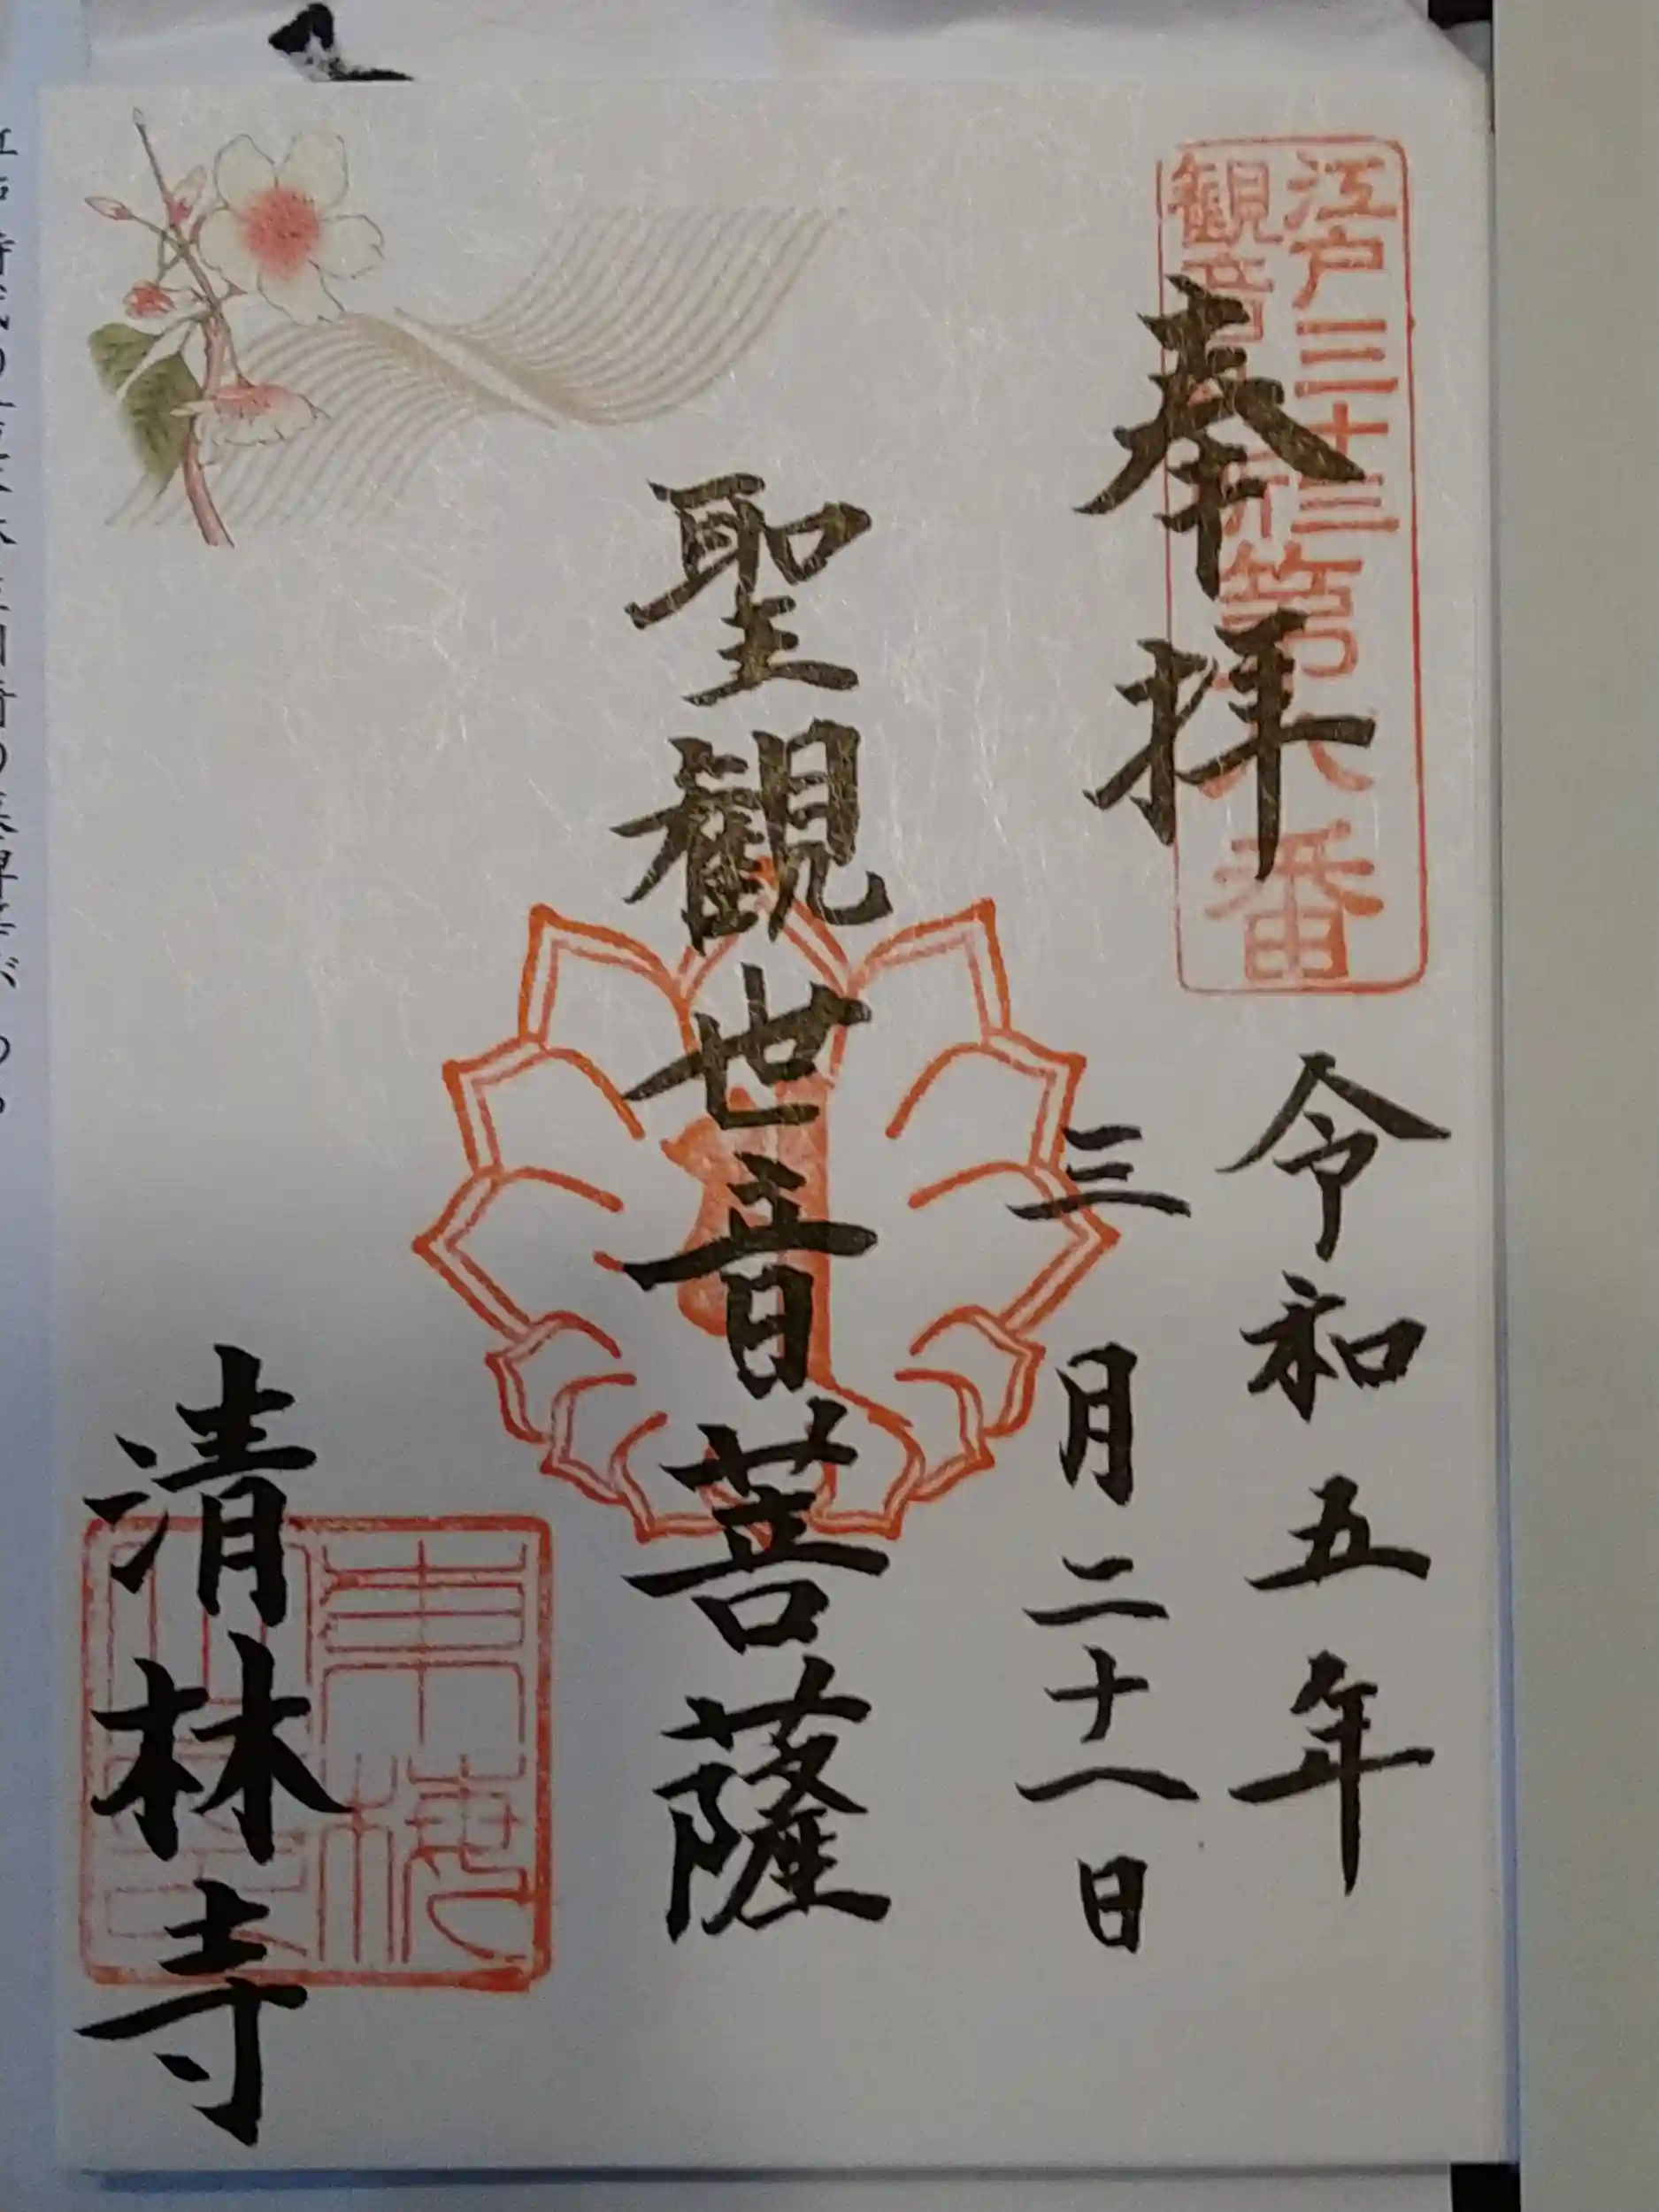 江戸三十三
観音札所第八番
奉拝
令和五年
三月二十八日
聖観世音菩薩
清林寺